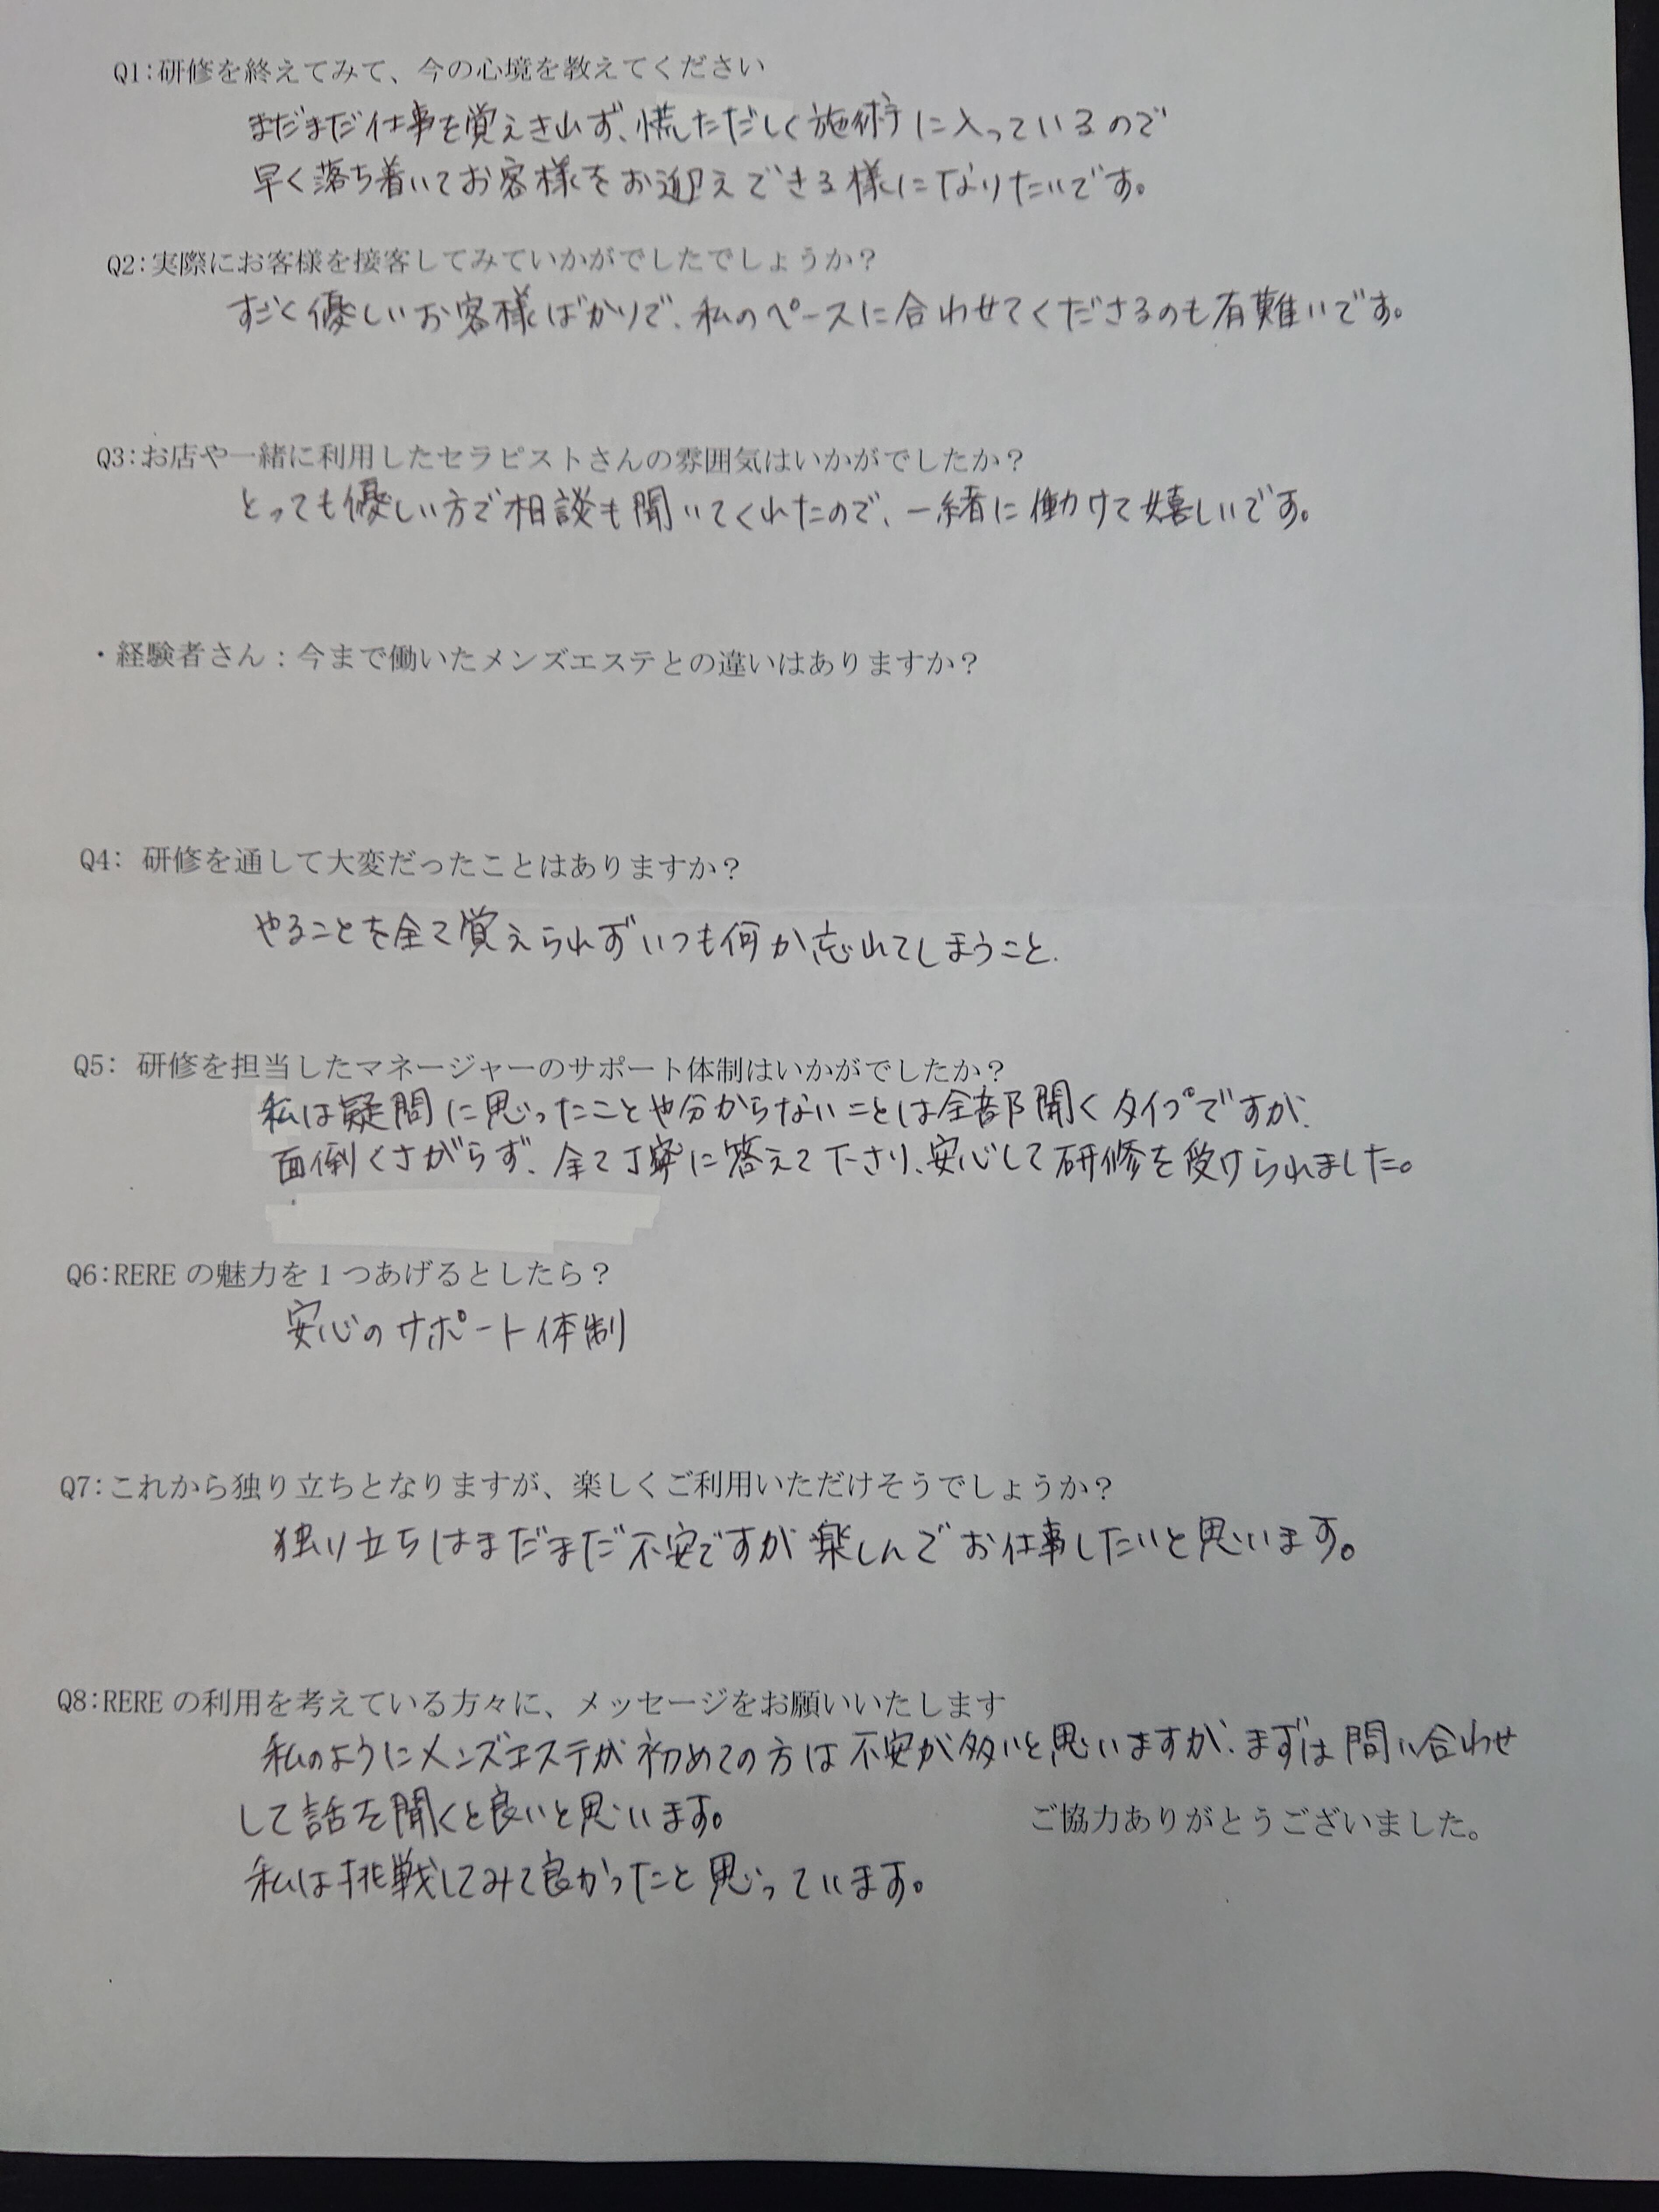 Q1:研修を終えてみて、今の心境を教えてください
まだまだ仕事を覚えきれず、慌ただしく施術に入っているので
早く落ち着いてお客様をお迎えできる様になりたいです。
Q2:実際にお客様を接客してみていかがでしたでしょうか？
すごく優しいお客様ばかりで、私のペースに合わせてくださるのも有難いです。
Q3:お店や一緒に利用したセラピストさんの雰囲気はいかがでしたか？
とっても優しい方で相談も聞いてくれたので、一緒に働けて嬉しいです。
・経験者さん：今まで働いたメンズエステとの違いはありますか？
Q4: 研修を通して大変だったことはありますか？
やることを全て覚えられずいつも何か忘れてしまうこと.
Q5: 研修を担当したマネージャーのサポート体制はいかがでしたか？
私は疑問に思ったことや分からないことは全部聞くタイプですが、
面倒くさがらず、全て丁寧に答えて下さり、安心して研修を受けられました。
Q6:RERE の魅力を１つあげるとしたら？
安心のサポート体制
Q7:これから独り立ちとなりますが、楽しくご利用いただけそうでしょうか？
独り立ちはまだまだ不安ですが楽しんでお仕事したいと思います。
Q8:RERE の利用を考えている方々に、メッセージをお願いいたします
私のようにメンズエステが初めての方は不安が多いと思いますが、まずは問い合わせ
して話を聞くと良いと思います。
ご協力ありがとうございました。
私は挑戦してみて良かったと思っています。